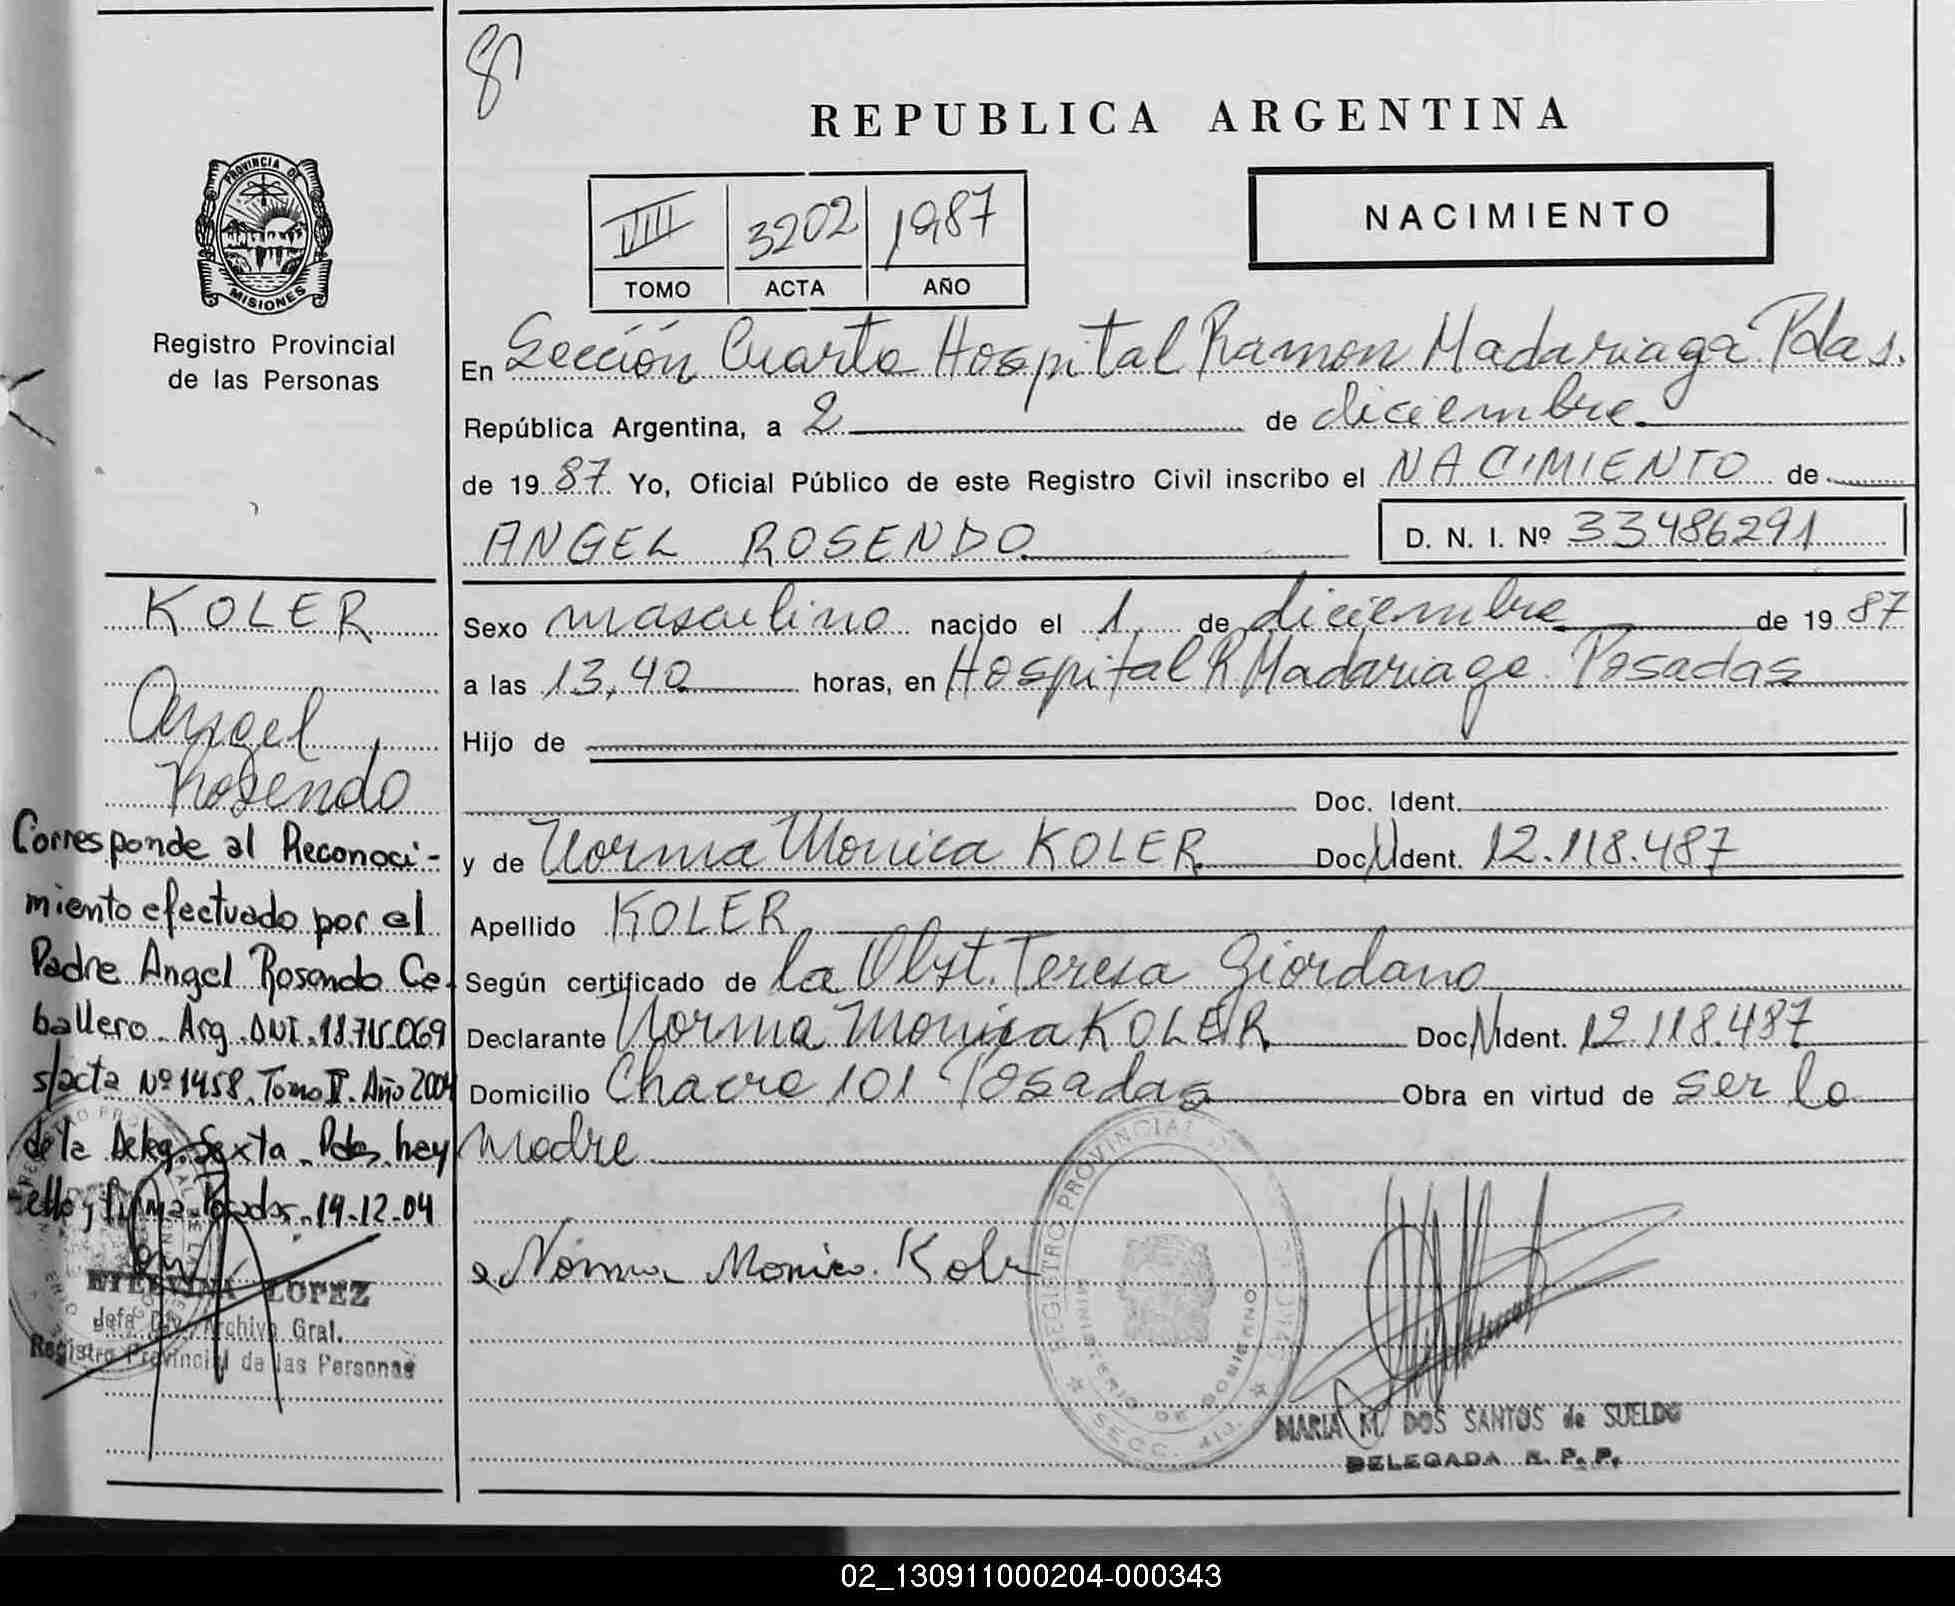 8
REPUBLICA ARGENTINA
PROVINCIA DE
MISIONES
Registro Provincial
de las Personas
VIII 3202 1987
TOMO ACTA AÑO
NACIMIENTO
En Sección Cuarta Hospital Ramon Madariaga Pdas.
República Argentina, a 2 de diciembre
de 19 87 Yo, Oficial Público de este Registro Civil inscribo el NACIMIENTO de
ANGEL ROSENDO D. N. I. Nº 33486291
Sexo masculino nacido el 1 de diciembre de 19 87
a las 13,40 horas, en Hospital R Madariaga Posadas
Hijo de
Doc. Ident.
y de Norma Monica KOLER Doc. Ident. 12.118.487
Apellido KOLER
Según certificado de la Obst. Teresa Giordano
Declarante Norma Monica KOLER Doc. Ident. 12.118.487
Domicilio Chacra 101 Posadas Obra en virtud de ser la
madre
Norma Monica Koler
REGISTRO PROVINCIAL
MINISTERIO DE GOBIERNO
SECC. 4ta.
MARIA M. DOS SANTOS de SUELDO
DELEGADA R. P. P.
KOLER
Angel
Rosendo
Corresponde al Reconoci-
miento efectuado por el
Padre Angel Rosendo Ca-
ballero Arg. DNI. 18.715.069
s/acta Nº 1458. Tomo II. Año 2004
de la Deleg. Sexta Pdas. hay
sello y firma Posadas. 14-12-04
LOPEZ
Jefa Div. Archivo Gral.
Registro Provincial de las Personas
02_130911000204-000343